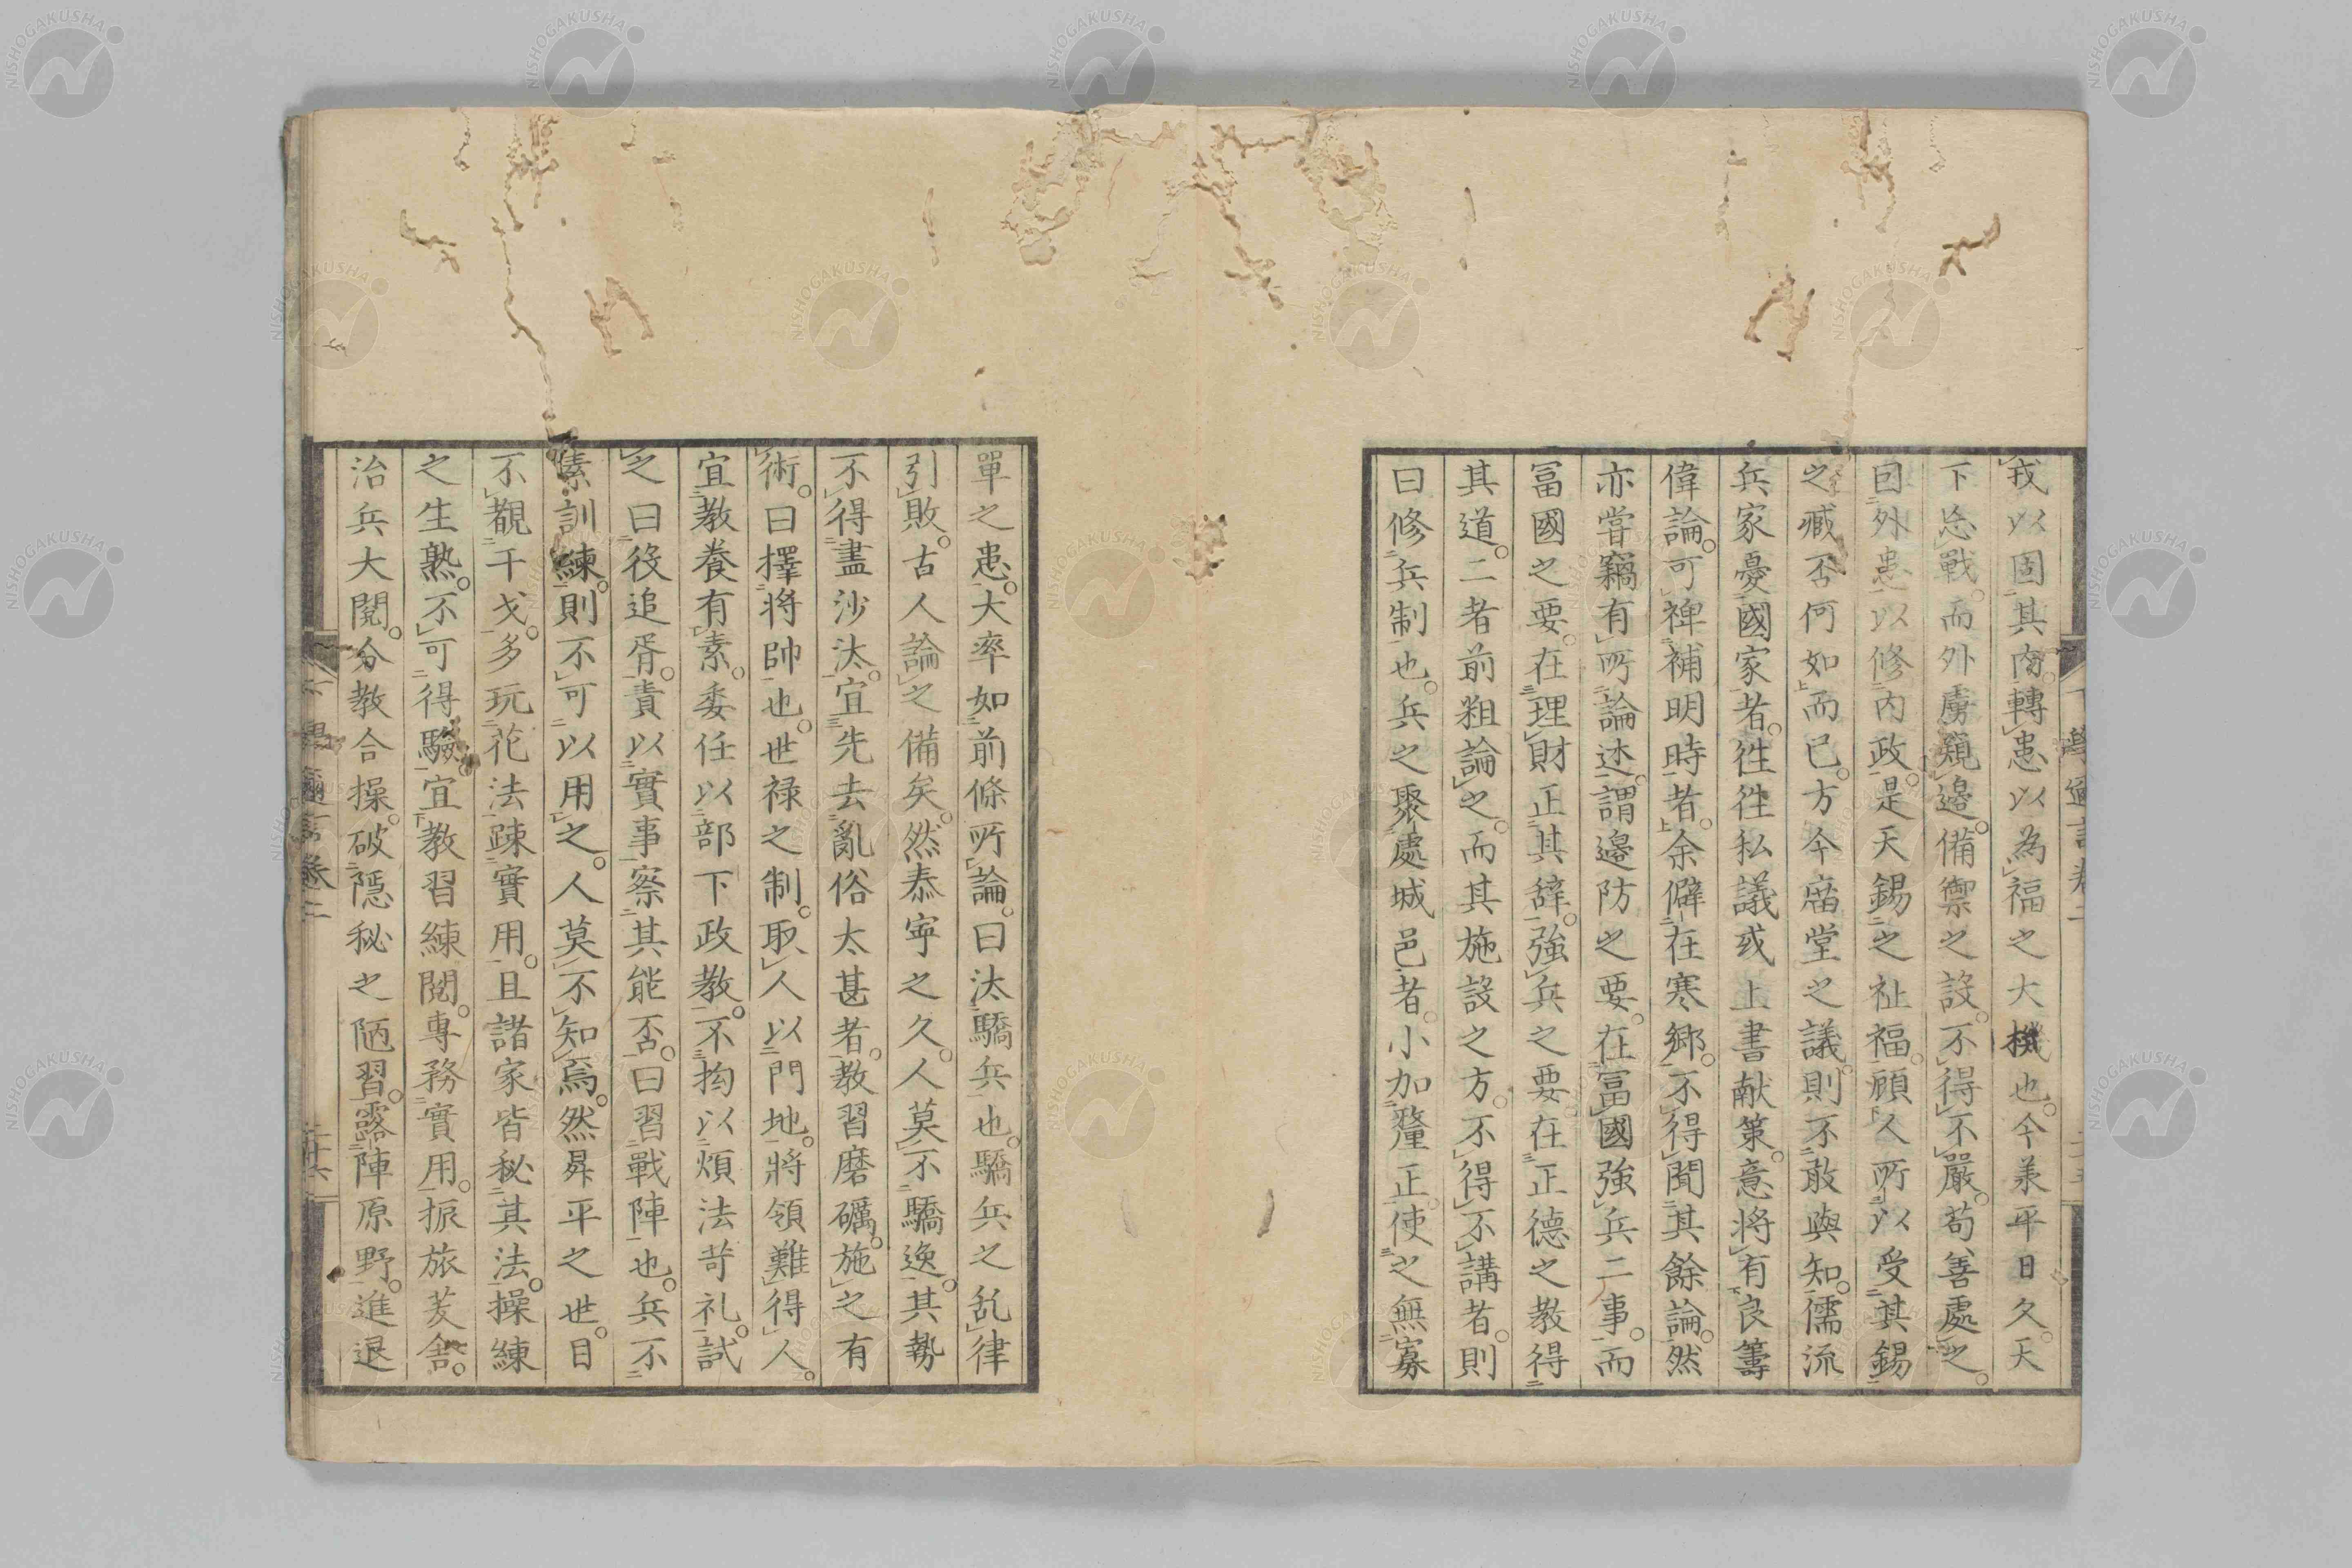 戎以固其內。轉患以為福之大機也。今羕平日久。天
下忘戰。而外虜窺邊。備禦之設。不得不嚴。苟善處之。
因外患以修內政。是天錫之祉福。顧人所以受其錫
之臧否何如而已。方今廟堂之議。則不敢與知。儒流
兵家憂國家者。徃徃私議或上書献策。意將有良籌
偉論。可裨補明時者。余僻在寒鄉。不得聞其餘論。然
亦嘗竊有所論述。謂邊防之要。在冨國強兵二事。而
冨國之要。在理財正其辭。強兵之要在正德之教得
其道。二者前粗論之。而其施設之方。不得不講者。則
曰修兵制也。兵之聚處城邑者。小加釐正。使之無寡
單之患。大率如前條所論。曰汰驕兵也。驕兵之乱律
引敗。古人論之備矣。然泰寧之久。人莫不驕逸。其勢
不得盡沙汰。宜先去亂俗太甚者。教習磨礪。施之有
術。曰擇將帥也。世禄之制。取人以門地。將領難得人。
宜教養有素。委任以部下政教。不拘以煩法苛礼。試
之曰役追胥。責以實事。察其能否。曰習戰陣也。兵不
素訓練。則不可以用之。人莫不知焉。然昇平之世。目
不觀干戈。多玩花法。踈實用。且諸家皆秘其法。操練
之生熟。不可得驗。宜教習練閱。專務實用。振旅茇舍。
治兵大閱。分教合操。破隱秘之陋習。露陣原野。進退
下學邇言卷二